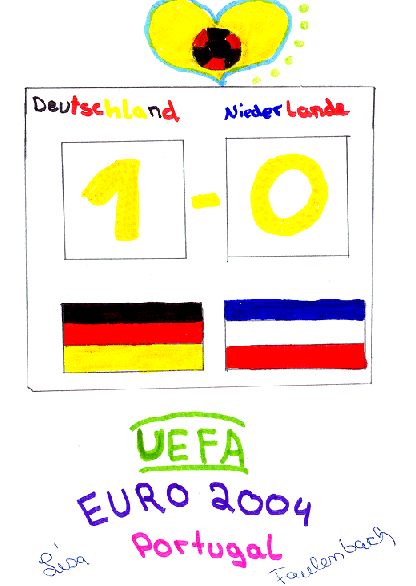 Deutschland Niederlande
1 - 0
UEFA
EURO 2004
Portugal
Lisa Faulenbach